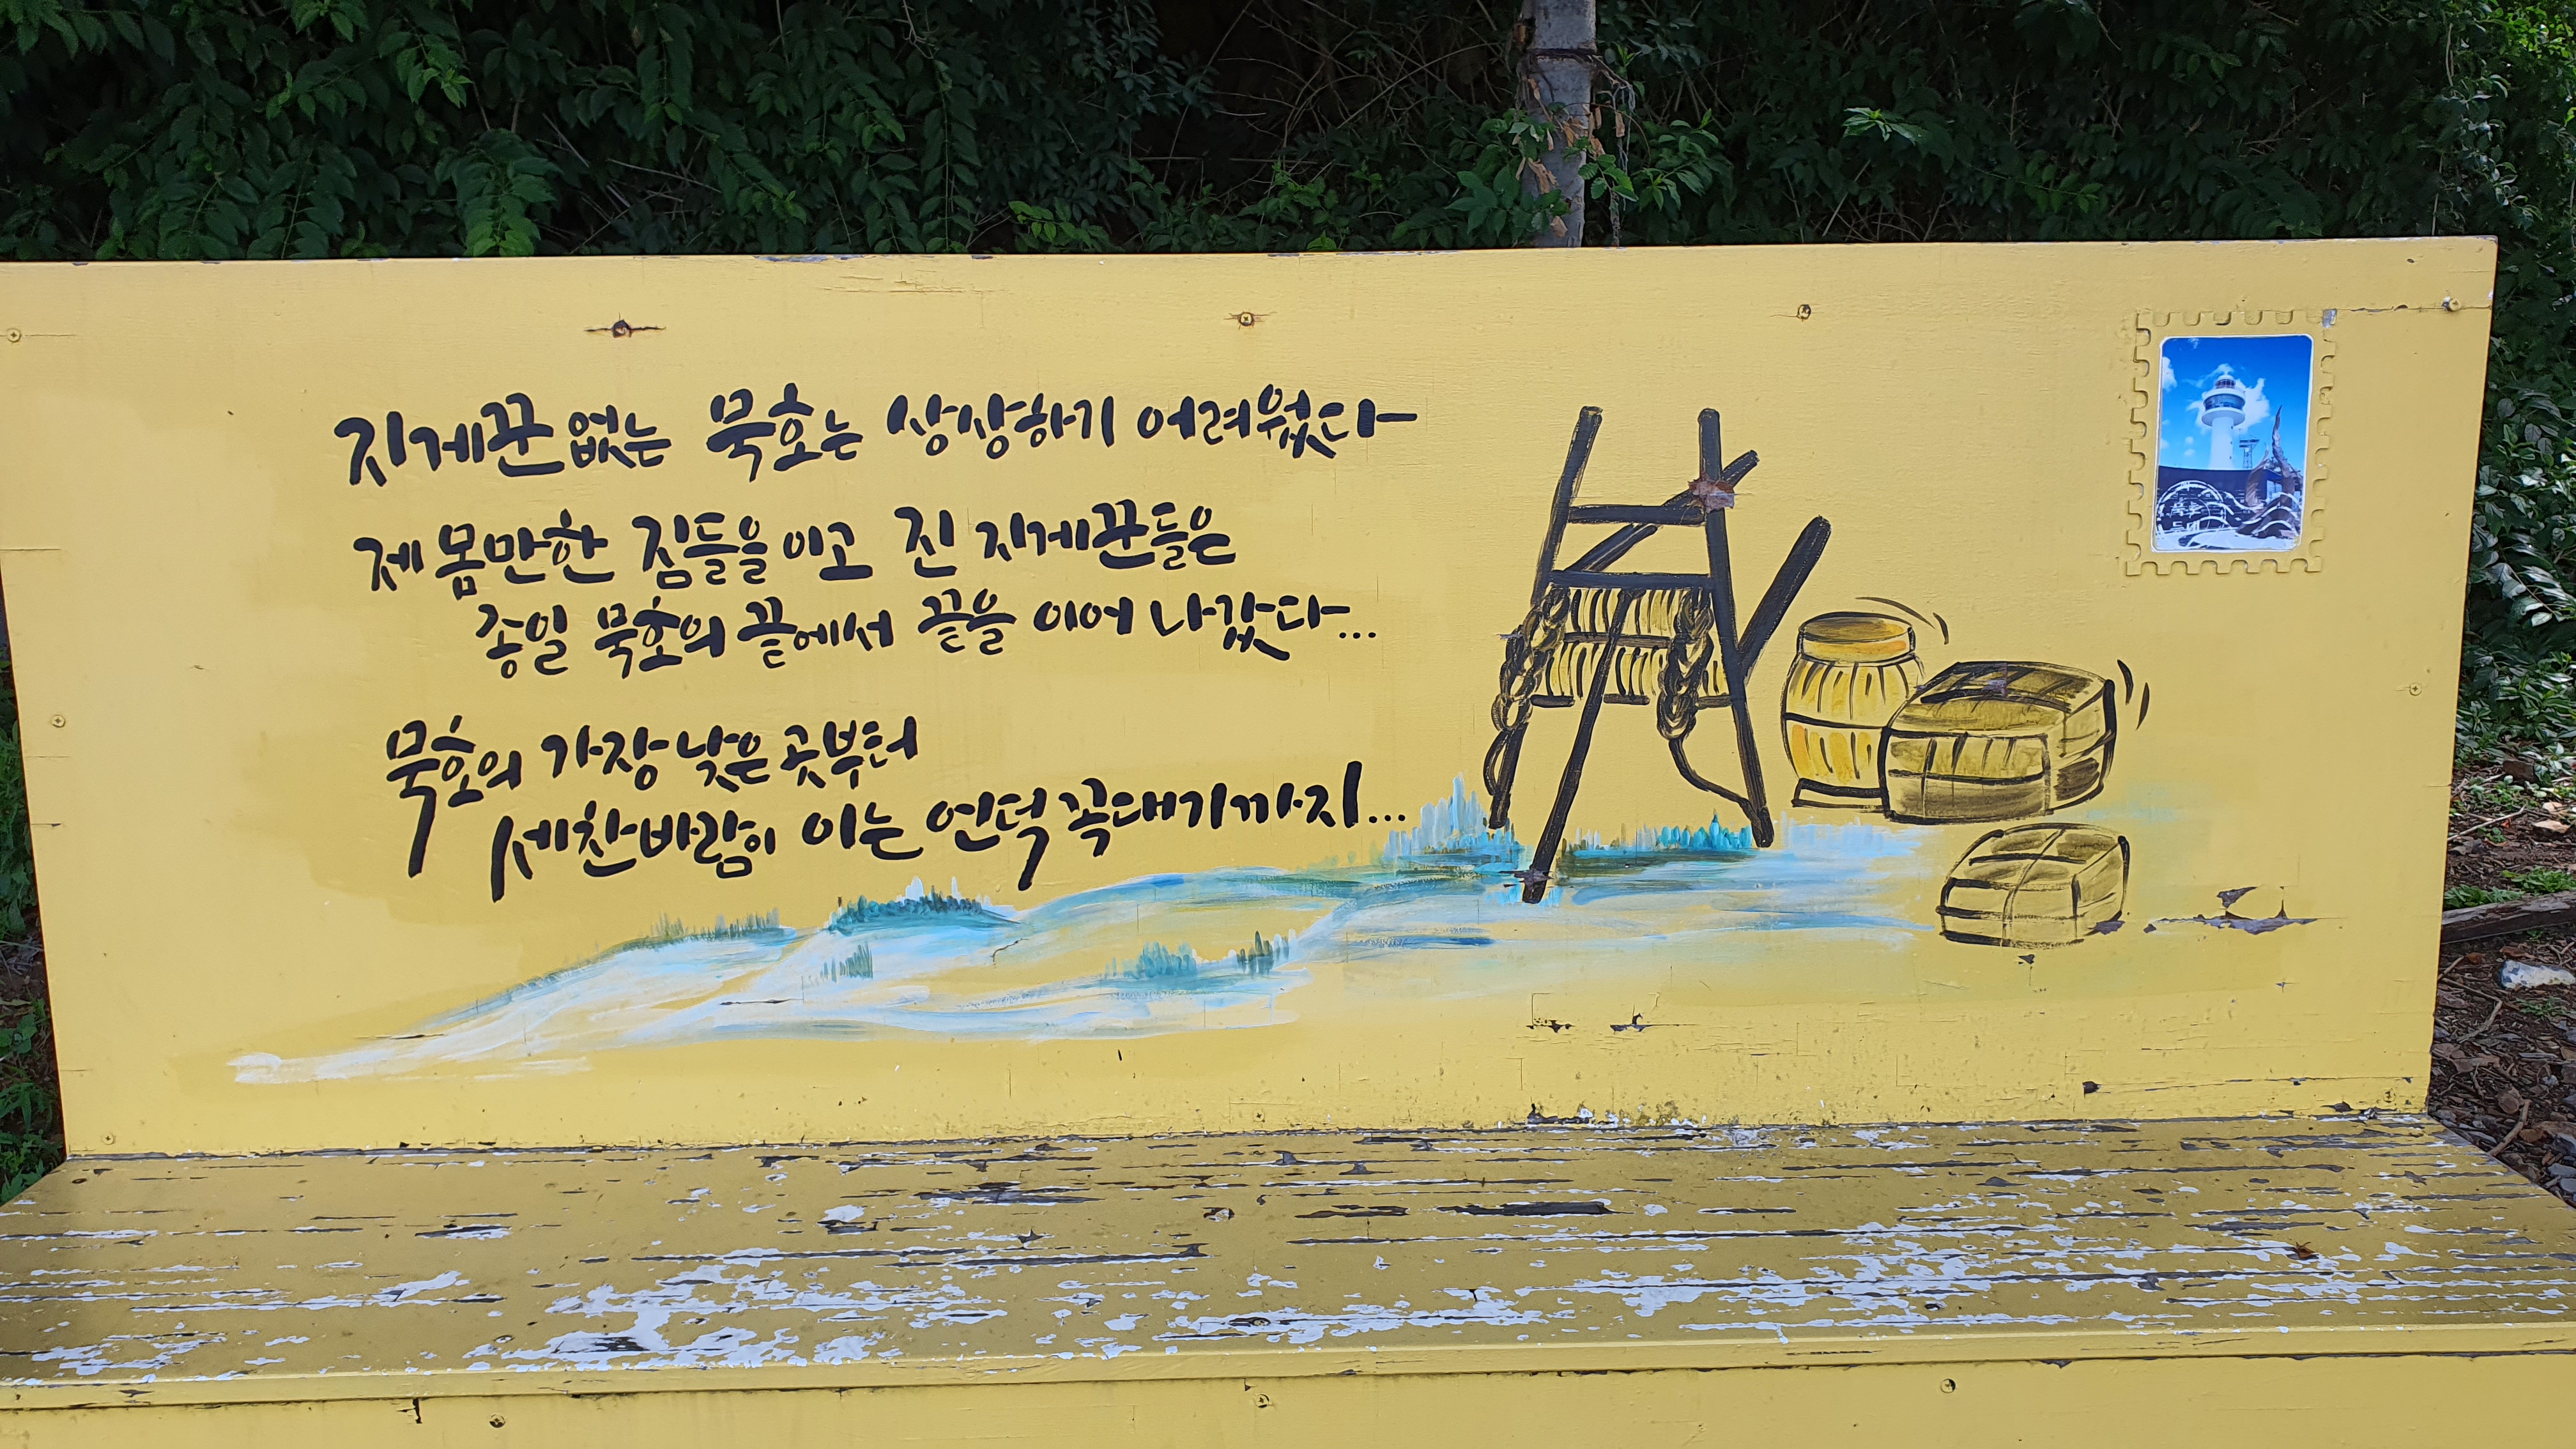 지게꾼 없는 묵호는 상상하기 어려웠다
제 몸만한 짐들을 이고 진 지게꾼들은
종일 묵호의 끝에서 끝을 이어 나갔다...
묵호의 가장 낮은 곳부터
세찬 바람이 이는 언덕 꼭대기까지...